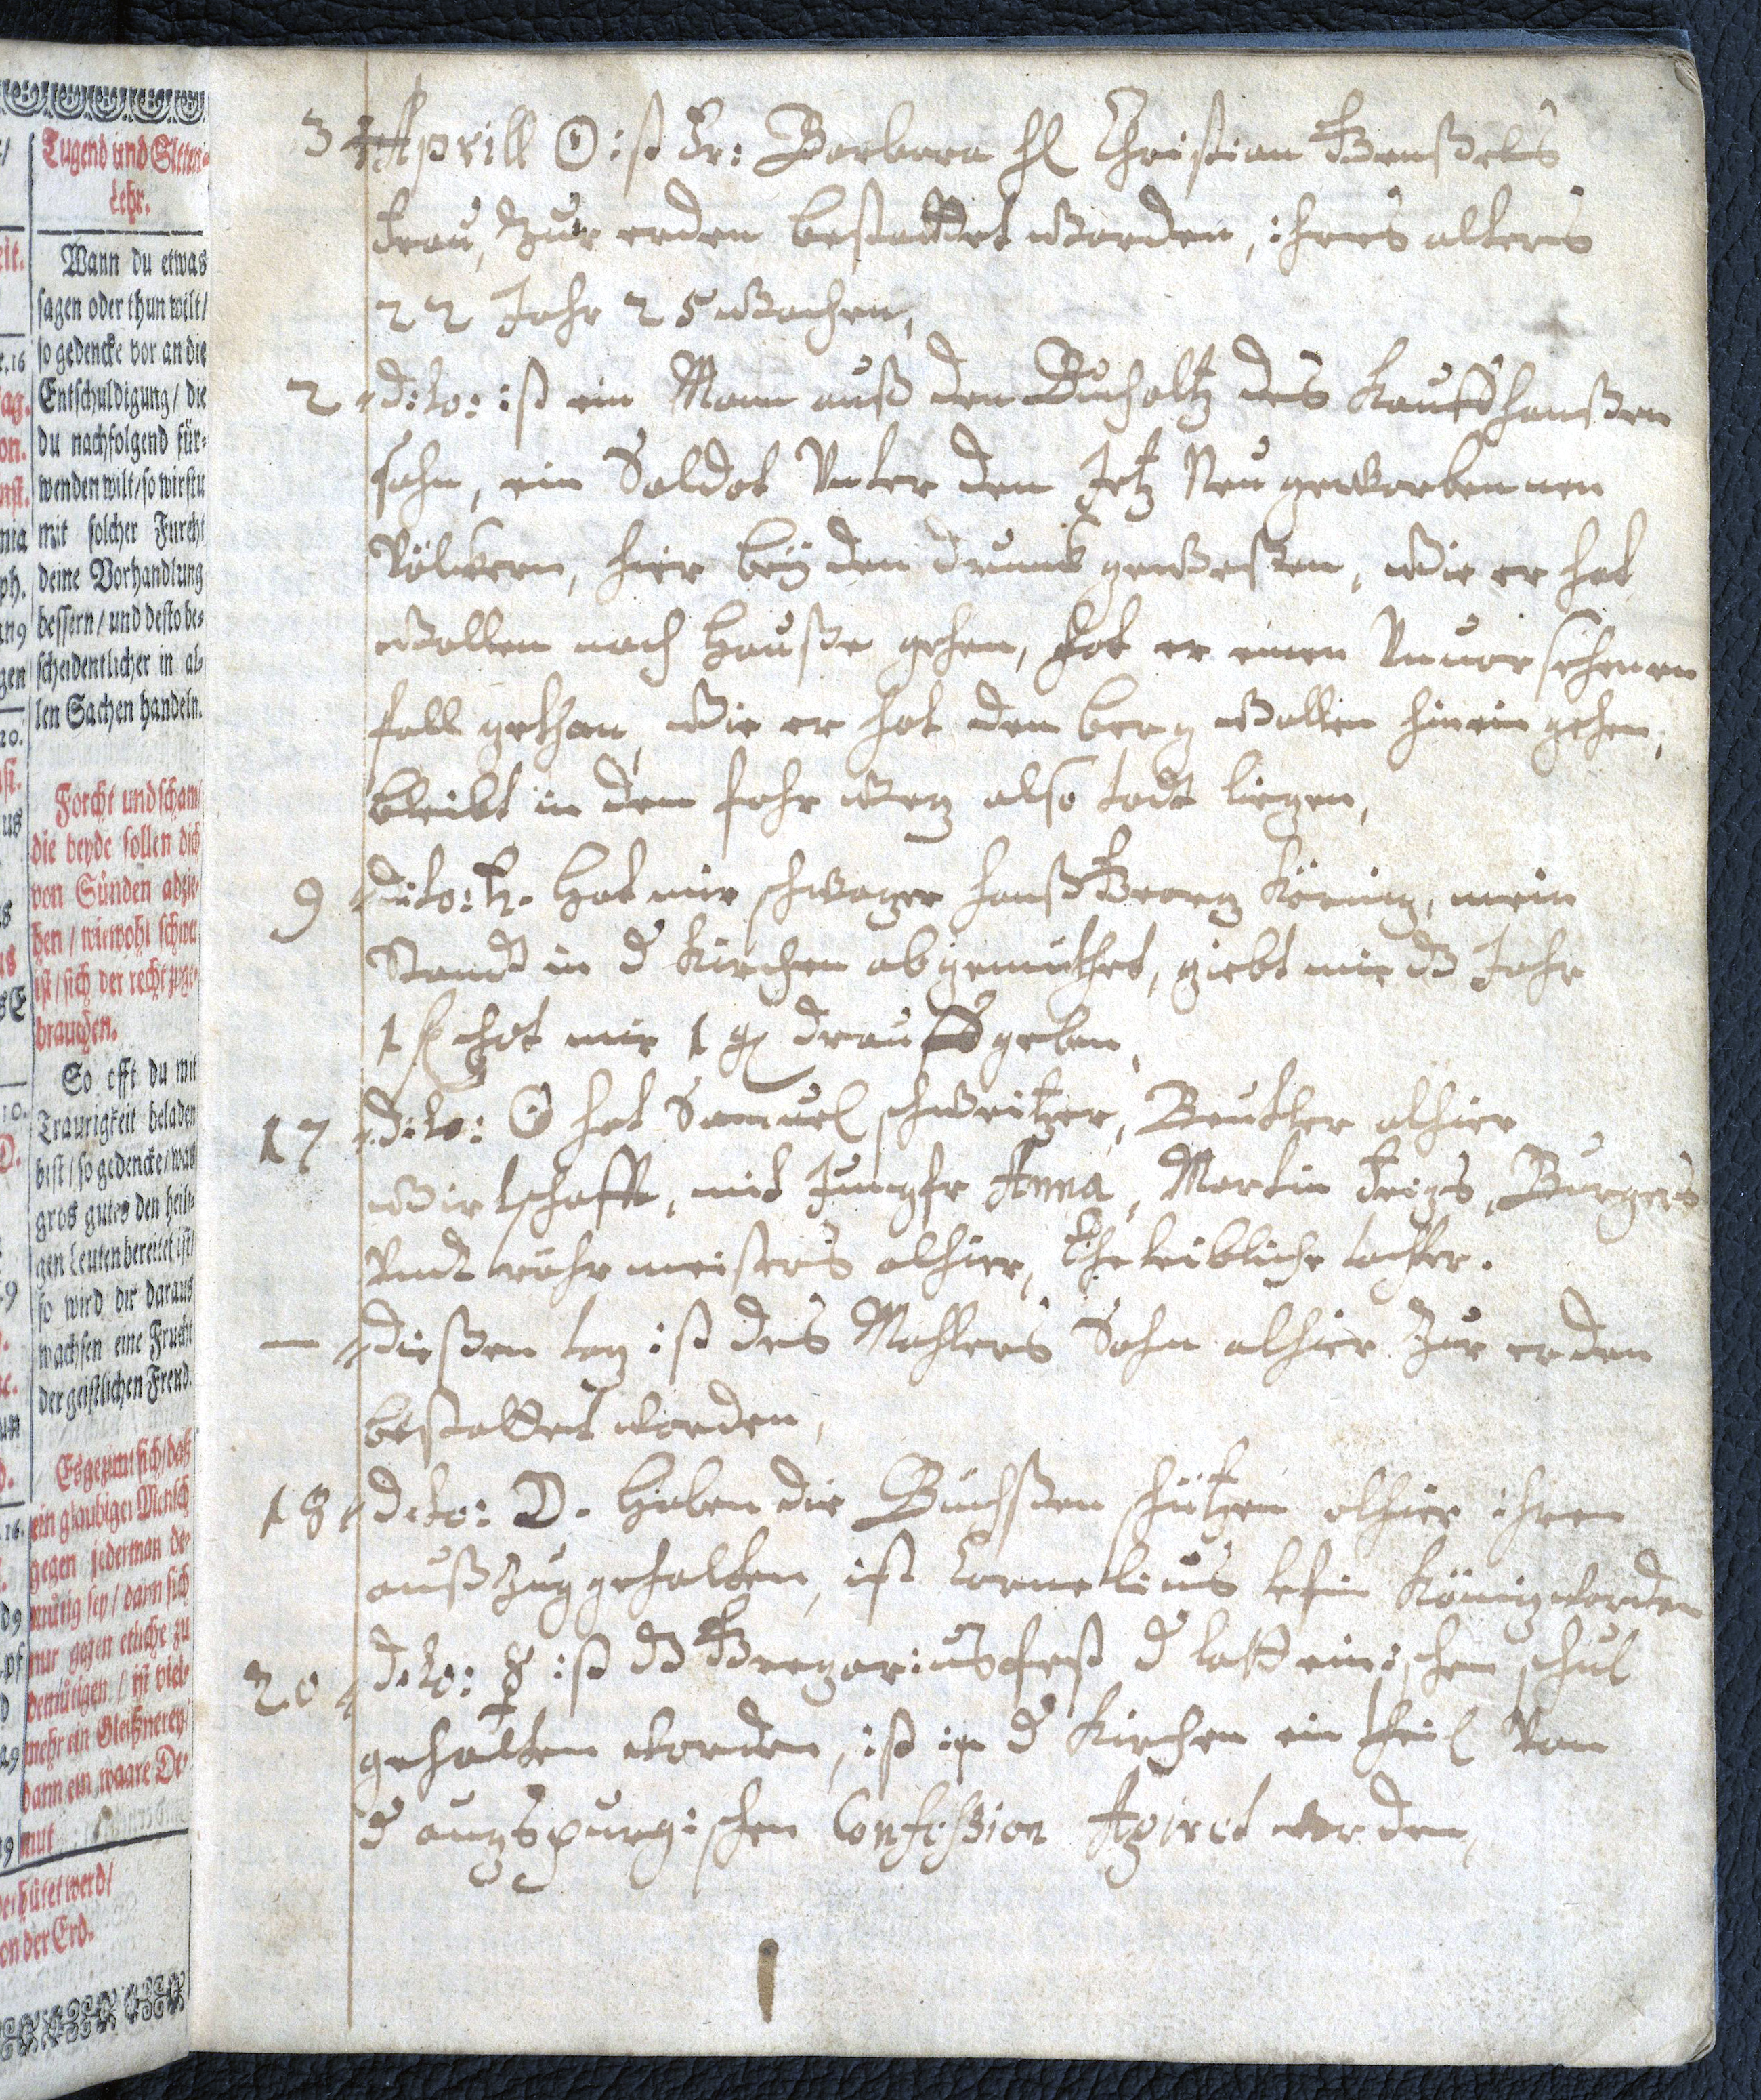 Tugend und Sitten-
Lehr.
Wann du etwas
sagen oder thun wilt/
so gedencke vor an die
Entschuldigung/ die
du nachfolgend für-
wenden wilt/ so wirstu
mit solcher Furcht
deine Vorhandlung
bessern/ und desto be-
scheidentlicher in al-
len Sachen handeln.
Forcht und scham/
die beyde sollen dich
von Sünden abzie-
hen/ wiewohl schwer
ist/ sich der recht zuge-
brauchen.
So offt du mit
Traurigkeit beladen
bist/ so gedencke/ was
gros gutes den heili-
gen Leuten bereitet ist/
so wird dir daraus
wachsen eine Frucht
der geistlichen Freud.
Es gezimt sich/ daß
ein glaubiger Mensch
gegen jederman de-
mütig sey/ dann sich
nur gegen etliche zu
demütigen/ ist viel-
mehr ein Gleißnerey/
dann ein waare De-
mut
verhütet werd/
von der Erd.
3 Aprill ☉ ist Fr: Barbara H Christian Wenßels
frau, Zur erden bestattet worden, ihres alters
22 Jahr 25 wochen,
2 dito: ist ein Mann auß den Bucholtz des Kauffhanßen
sohn, ein Soldat Unter den Jetz Neu geworbennen
Völckern, hier beÿ den drunck geweßen, wie er hat
wollen nach Hauße gehen, hat er einen Unuorsehenen
fall gethan, wie er hat den berg wollen hinein gehen,
bleibt in den fahr weg also todt liegen,
9 dito: ♄. Hat mir schwager Hanß Georg König, mein
Standt in d Kirchen abgemuthet, giebt mir dz Jahr
1 hat mir 1 g drauff geben,
17 dito: ☉ hat Samuel schweitzer, Beutler alhier
wirtschafft, mit Jungfr Anna, Martin Feigs, Burgers
Undt röhrmeisters alhier, Eheleibliche tochter.
— dießen tag ist des Mahlers Sohn alhier Zur erden
bestattet worden,
18 dito: ☽. Haben die Büchßen schützen alhier ihren
außzug gehalten, ist Cornelius König worden
20 dito: ☿ ist dz Gregoriusfest d latteinischen schul
gehalten worden, ist in d Kirchen ein theil Von
d augspurgischen Confession Agiret worden,